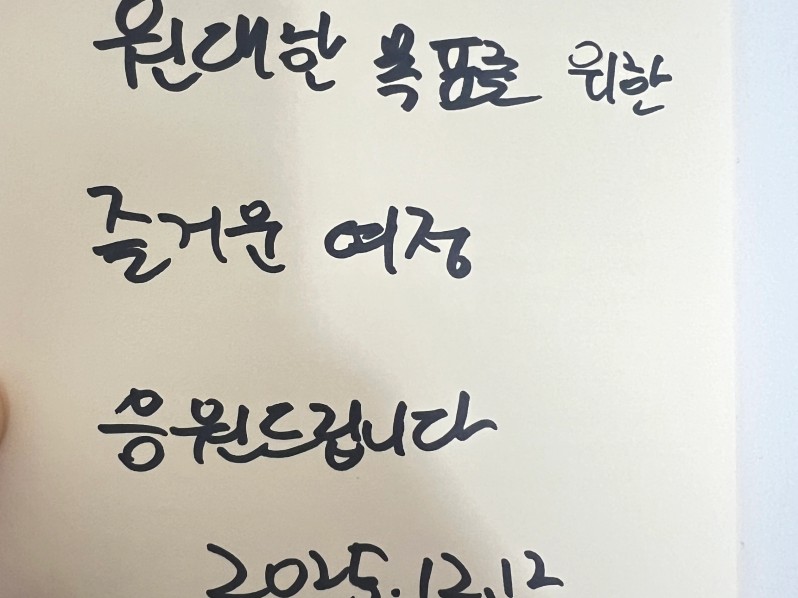 원대한 목표를 위한
즐거운 여정
응원드립니다
2025.12.12